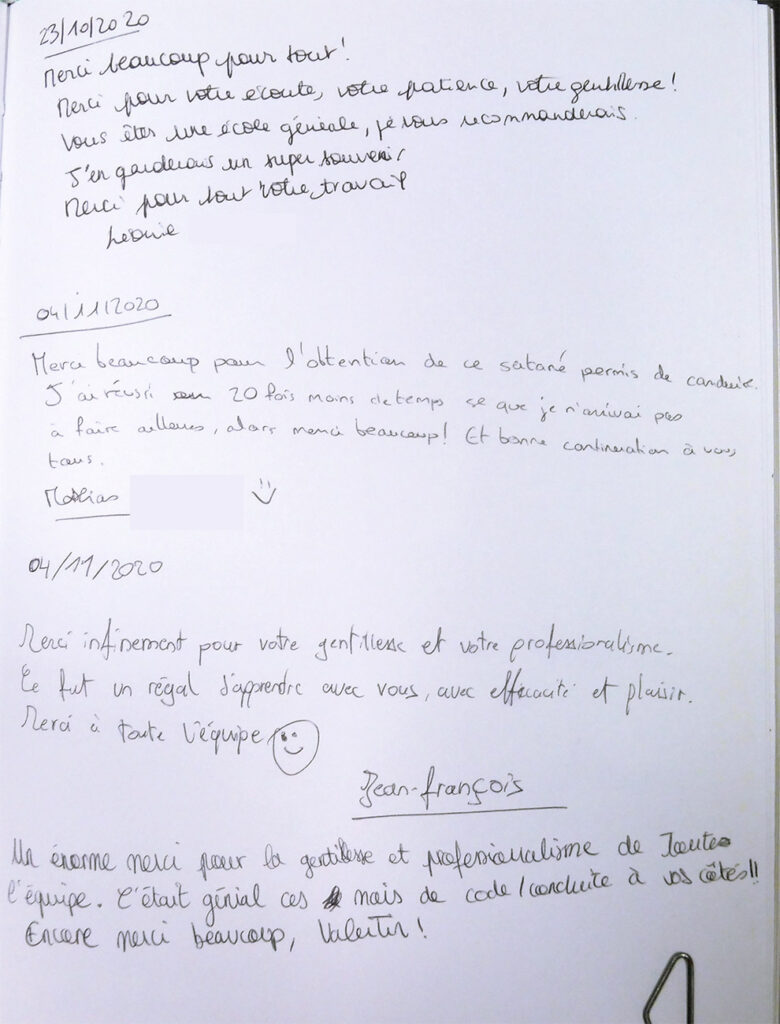 23/10/2020
Merci beaucoup pour tout!
Merci pour votre écoute, votre patience, votre gentillesse!
Vous êtes une école géniale, je vous recommanderais.
J'en garderais un super souvenir
Merci pour tout votre travail
Léonie
04/11/2020
Merci beaucoup pour l'obtention de ce satané permis de conduire.
J'ai réussi en 20 fois moins de temps se que je n'arrivai pas
à faire ailleurs, alors merci beaucoup! Et bonne continuation à vous
tous.
Mathias
04/11/2020
Merci infiniement pour votre gentillesse et votre professionalisme.
Ce fut un régal d'apprendre avec vous, avec efficacité et plaisir.
Merci à toute l'équipe
Jean-françois
Un énorme merci pour la gentillesse et professionnalisme de Toute
l'équipe. C'était génial ces mois de code/conduite à vos côtés!!
Encore merci beaucoup, Valentin!